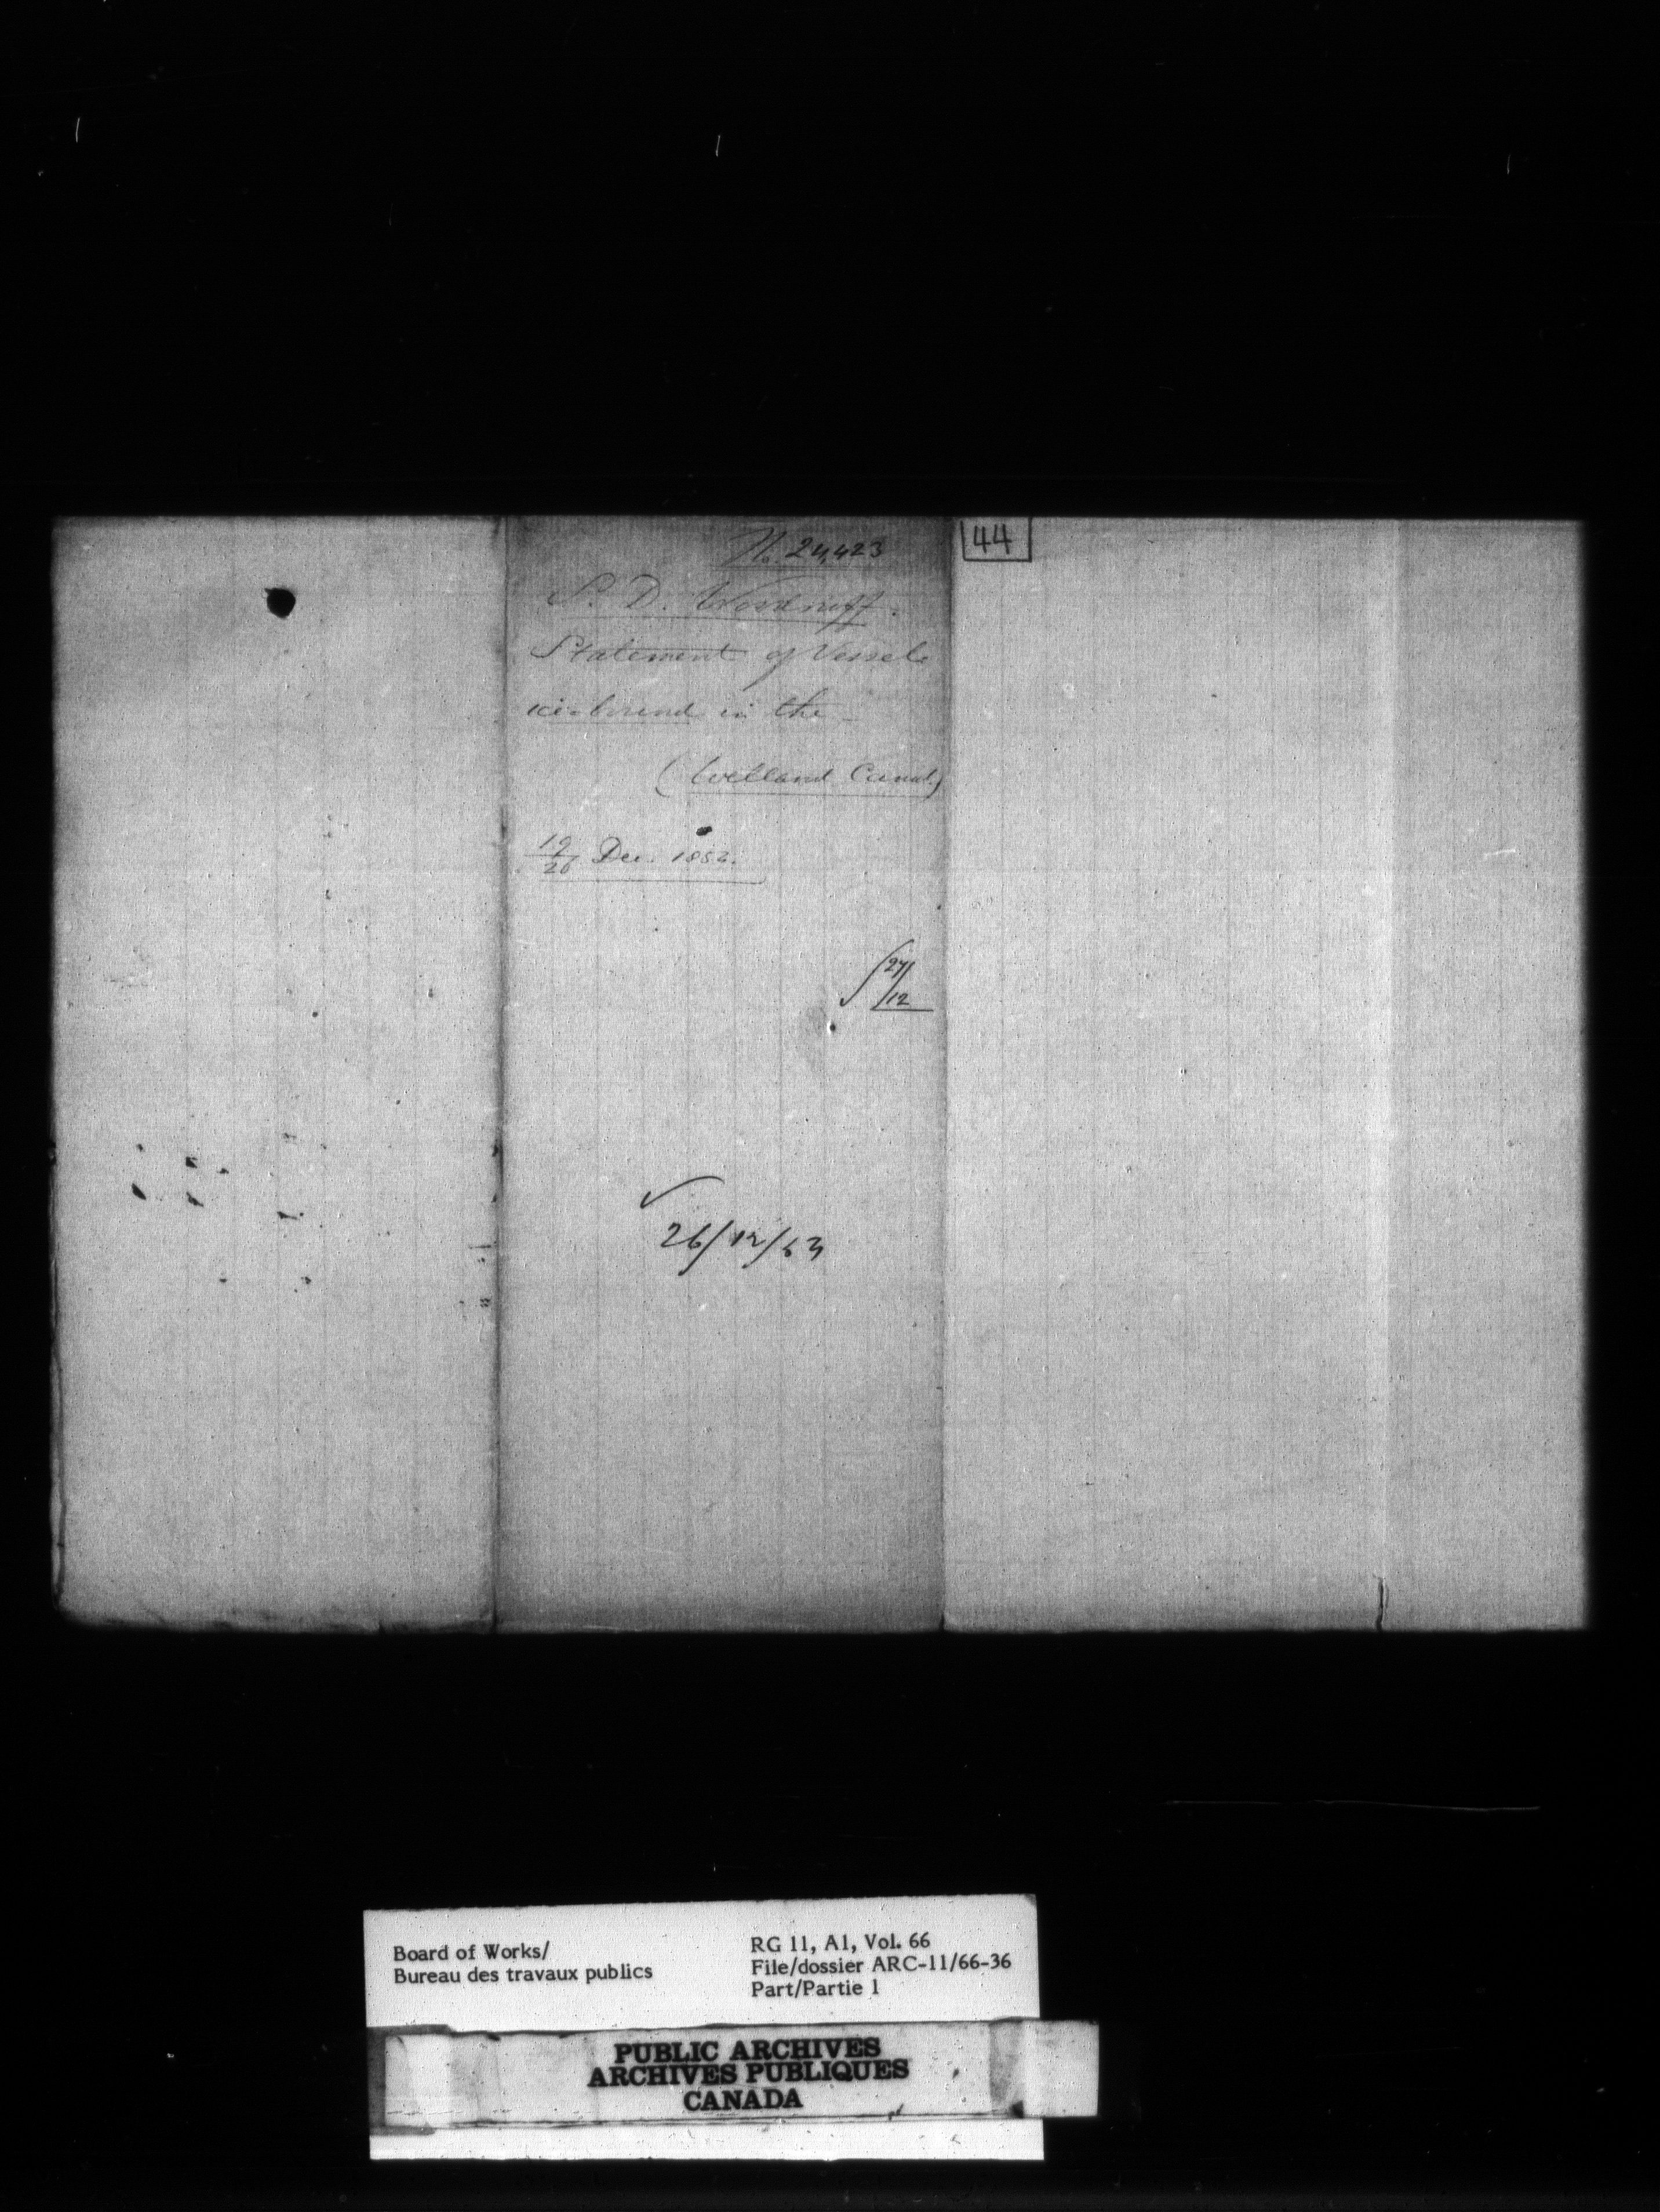 No. 24,423
44
S. D. Woodruff.
Statement of Vessels
ice-bound in the
(Welland Canal)
19/26 Dec. 1853.
27/12
26/12/53
Board of Works/
Bureau des travaux publics
RG 11, A1, Vol. 66
File/dossier ARC-11/66-36
Part/Partie 1
PUBLIC ARCHIVES
ARCHIVES PUBLIQUES
CANADA